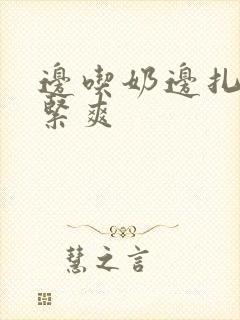 邊喫奶邊扎
緊爽
慧之言